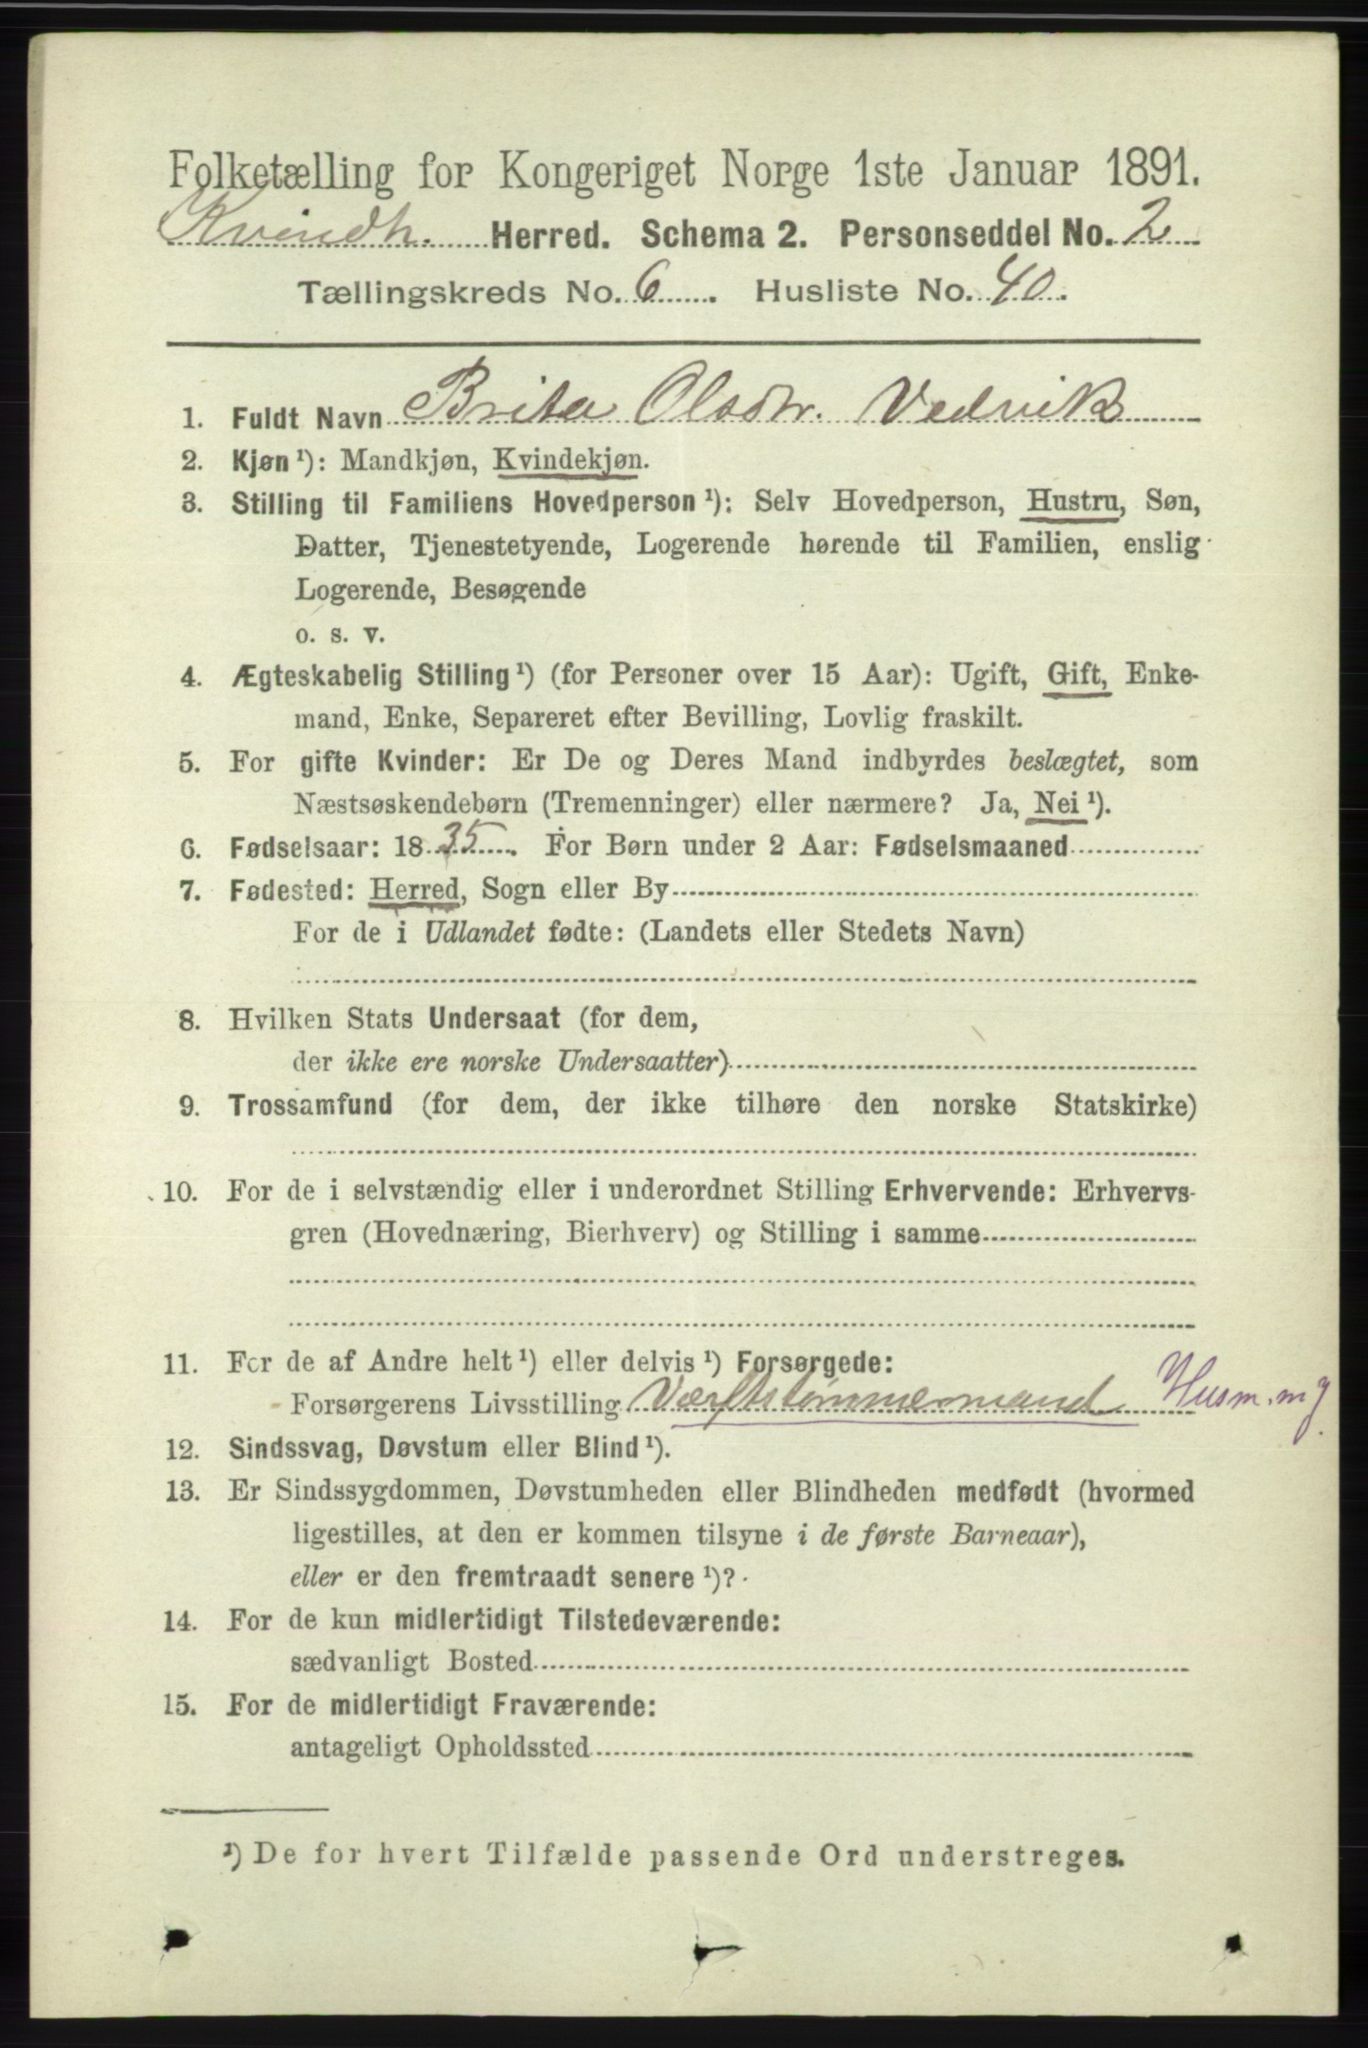 Folketælling for Kongeriget Norge 1ste Januar 1891.
Kvindh. Herred. Schema 2. Personseddel No. 2
Tællingskreds No. 6. Husliste No. 40.
1. Fuldt Navn Brita Olsdtr. Vedvik
2. Kjøn¹): Mandkjøn, Kvindekjøn.
3. Stilling til Familiens Hovedperson¹): Selv Hovedperson, Hustru, Søn,
Datter, Tjenestetyende, Logerende hørende til Familien, enslig
Logerende, Besøgende
o. s. v.
4. Ægteskabelig Stilling¹) (for Personer over 15 Aar): Ugift, Gift, Enke-
mand, Enke, Separeret efter Bevilling, Lovlig fraskilt.
5. For gifte Kvinder: Er De og Deres Mand indbyrdes beslægtet, som
Næstsøskendebørn (Tremenninger) eller nærmere? Ja, Nei¹).
6. Fødselsaar: 1835. For Børn under 2 Aar: Fødselsmaaned
7. Fødested: Herred, Sogn eller By
For de i Udlandet fødte: (Landets eller Stedets Navn)
8. Hvilken Stats Undersaat (for dem,
der ikke ere norske Undersaatter)
9. Trossamfund (for dem, der ikke tilhøre den norske Statskirke)
10. For de i selvstændig eller i underordnet Stilling Erhvervende: Erhvervs-
gren (Hovednæring, Bierhverv) og Stilling i samme
11. For de af Andre helt¹) eller delvis¹) Forsørgede:
Forsørgerens Livsstilling Værftstømmermand Husm. m j.
12. Sindssvag, Døvstum eller Blind¹).
13. Er Sindssygdommen, Døvstumheden eller Blindheden medfødt (hvormed
ligestilles, at den er kommen tilsyne i de første Barneaar),
eller er den fremtraadt senere¹)?
14. For de kun midlertidigt Tilstedeværende:
sædvanligt Bosted
15. For de midlertidigt Fraværende:
antageligt Opholdssted
¹) De for hvert Tilfælde passende Ord understreges.